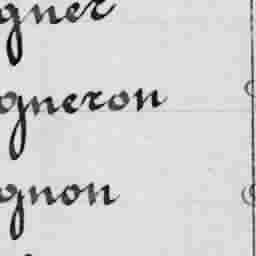 gner
gneron
gnon